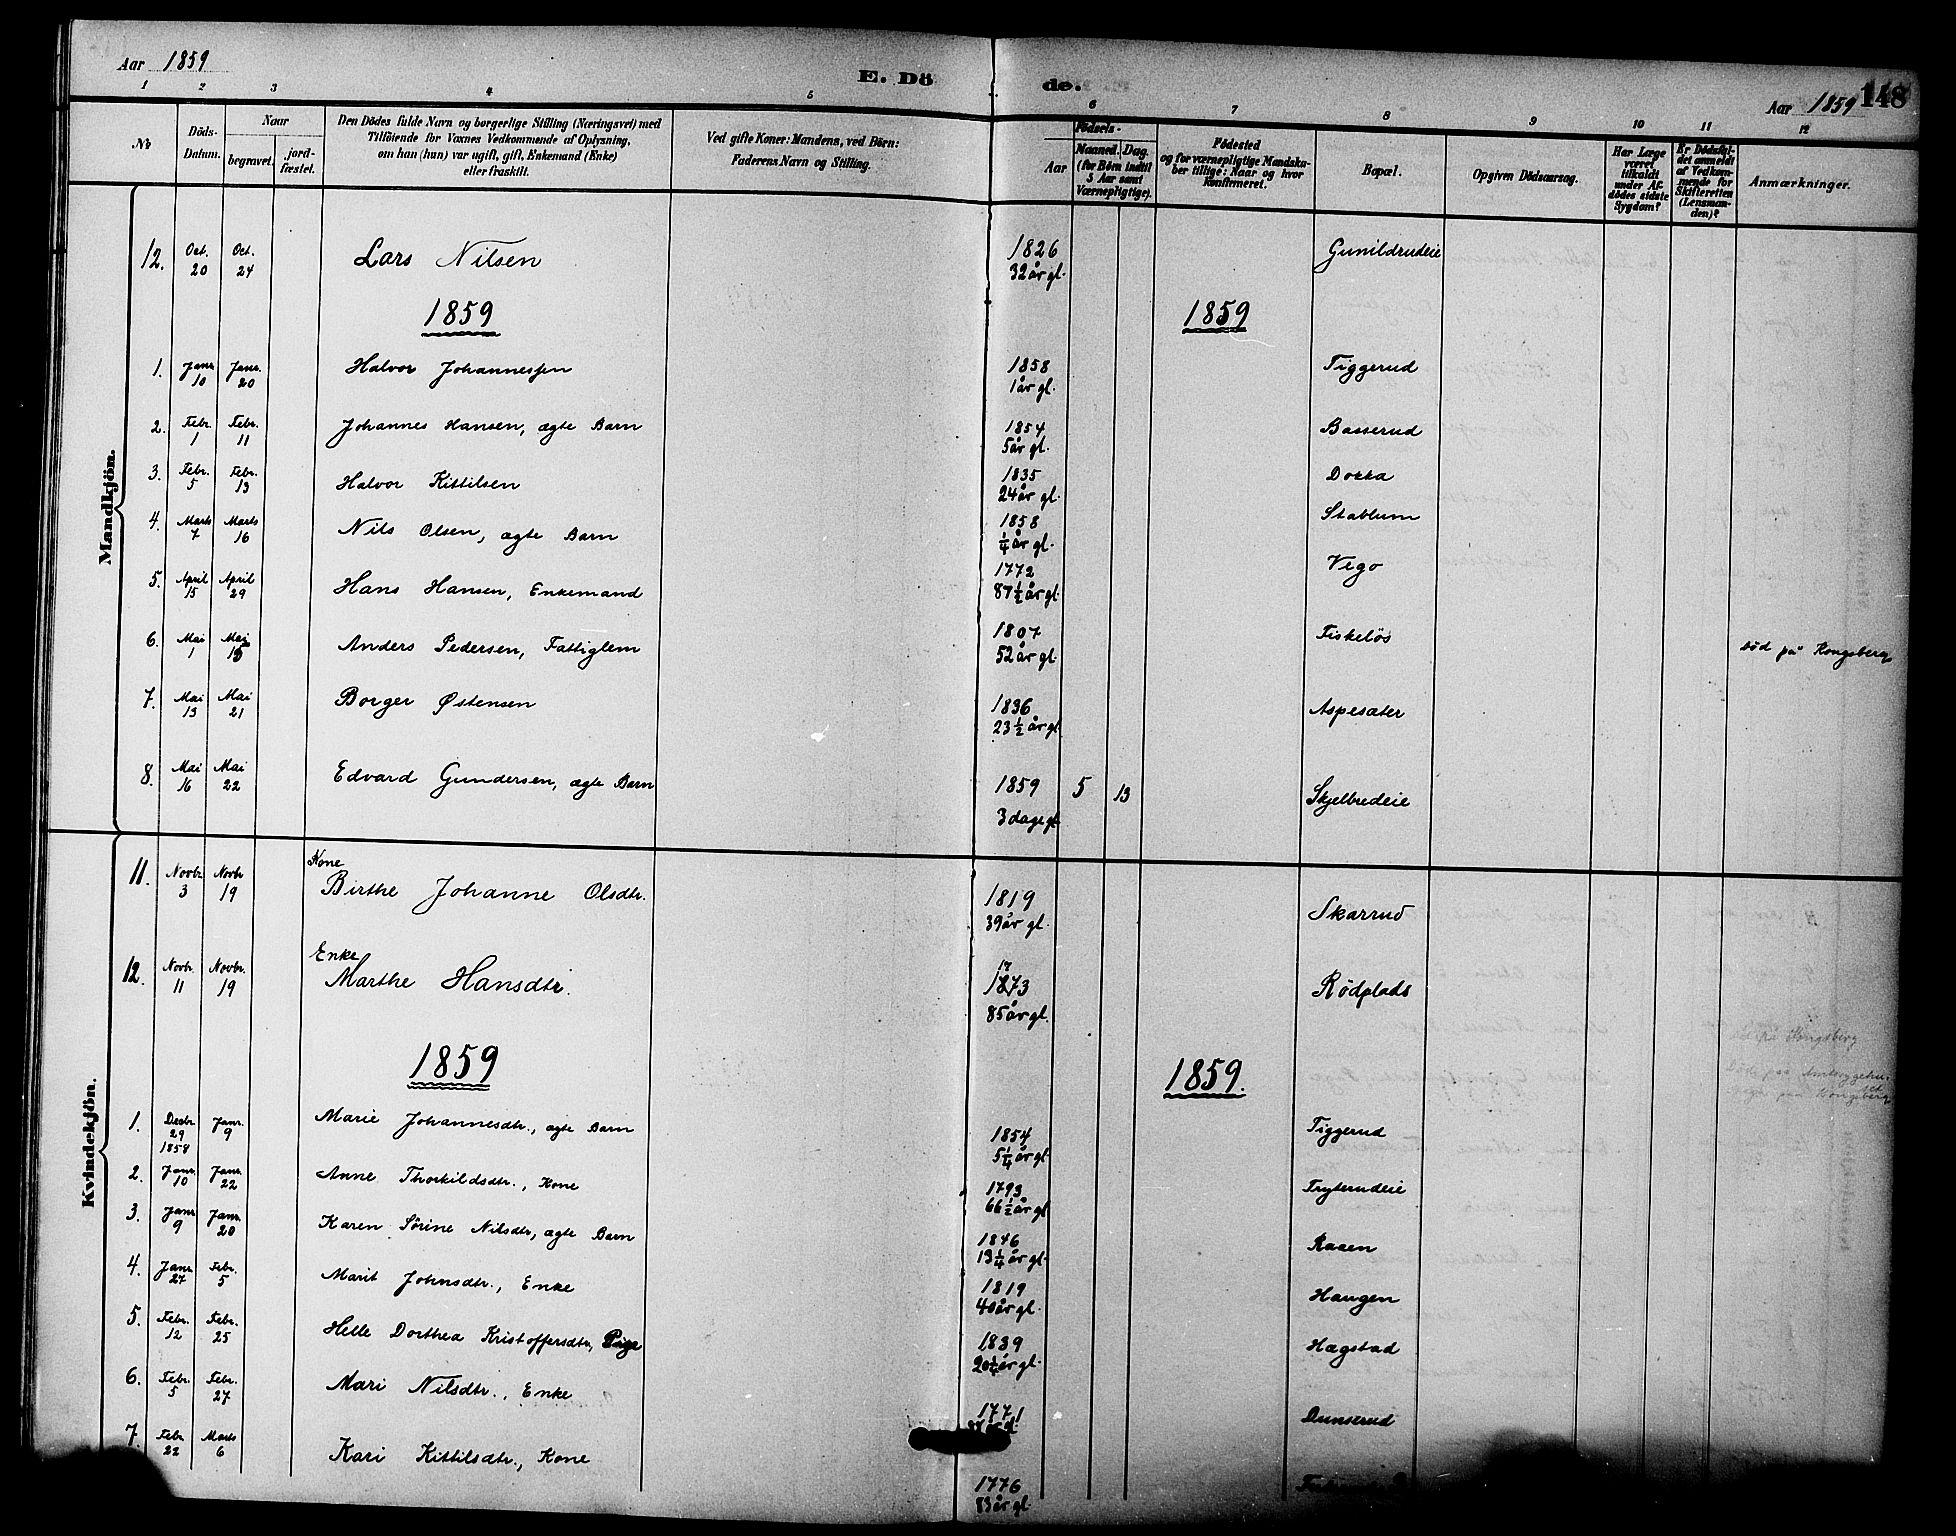 Aar 1859
E. Döde.
Aar 1859 148
1 2 3 4 5 6 7 8 9 10 11 12
No
Döds-Datum.
Naar
begravet.
jord-fæstet.
Den Dödes fulde Navn og borgerlige Stilling (Næringsvei) med
Tilföiende for Voxnes Vedkommende af Oplysning,
om han (hun) var ugift, gift, Enkemand (Enke)
eller fraskilt.
Ved gifte Koner: Mandens, ved Börn:
Faderens Navn og Stilling.
Födsels-
Aar
Maaned. Dag.
(for Börn indtil
5 Aar samt
Værnepligtige).
Födested
og for værnepligtige Mandska-
ber tillige: Naar og hvor
Konfirmeret.
Bopæl.
Opgiven Dödsaarsag.
Har Læge
været
tilkaldt
under Af-
dödes sidste
Sygdom?
Er Dödsfal-
det anmeldt
af Vedkom-
mende for
Skifteretten
(Lensman-
den)?
Anmærkninger.
Mandkjön.
12. Oct. 20 Oct. 24 Lars Nilsen 1826 32 år gl. Gunildrudeie
1859 1859
1. Janr. 10 Janr. 20 Halvor Johannessen 1858 1 år gl. Tiggerud
2. Febr. 1 Febr. 11 Johannes Hansen, ægte Barn 1854 5 år gl. Basserud
3. Febr. 5 Febr. 13 Halvor Kittilsen 1835 24 år gl. Dokka
4. Marts 7 Marts 16 Nils Olsen, ægte Barn 1858 ¼ år gl. Stablum
5. April 15 April 29 Hans Hansen, Enkemand 1772 87 ½ år gl. Vego
6. Mai 1 Mai Anders Pedersen, Fattiglem 1807 52 år gl. Fiskeløs død på Kongsberg
7. Mai 13 Mai 21 Borger Østensen 1836 23 ½ år gl. Aspesæter
8. Mai 16 Mai 22 Edvard Gundersen, ægte Barn 1859 5 13 3 dage gl. Skjelbredeie
Kvindekjön.
11. Novbr. 3 Novbr. 19 Kone Birthe Johanne Olsdtr. 1819 39 år gl. Skarrud
12. Novbr. 11 Novbr. 19 Enke Marthe Hansdtr. 17 1873 85 år gl. Rødplads
1859 1859.
1. Decbr. 29 1858 Janr. 9 Marie Johannesdtr., ægte Barn 1854 5 ¼ år gl. Tiggerud
2. Janr. 10 Janr. 22 Anne Thorkildsdtr., Kone 1793 66 ½ år gl. Tryterudeie
3. Janr. 9 Janr. 20 Karen Sørine Nilsdtr, ægte Barn 1846 13 ¼ år gl. Raaen
4. Janr. 27 Febr. 5 Marit Johnsdtr., Enke 1819 40 år gl. Haugen
5. Febr. 12 Febr. 25 Helle Dorthea Kristoffersdtr, Pige 1839 20 ¼ år gl. Hægstad
6. Febr. 5 Febr. 27 Mari Nilsdtr., Enke 1771 Dunserud
7. Febr. 22 Marts 6 Kari Kittilsdtr., Kone 1776 83 år gl.